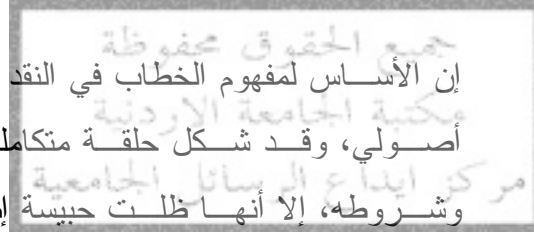 جميع الحقوق محفوظة
إن الأساس لمفهوم الخطاب في النقد
مكتبة الجامعة الاردنية
أصولي، وقد شكل حلقة متكامل
مركز ايداع الرسائل الجامعية
وشروطه، إلا أنها ظلت حبيسة